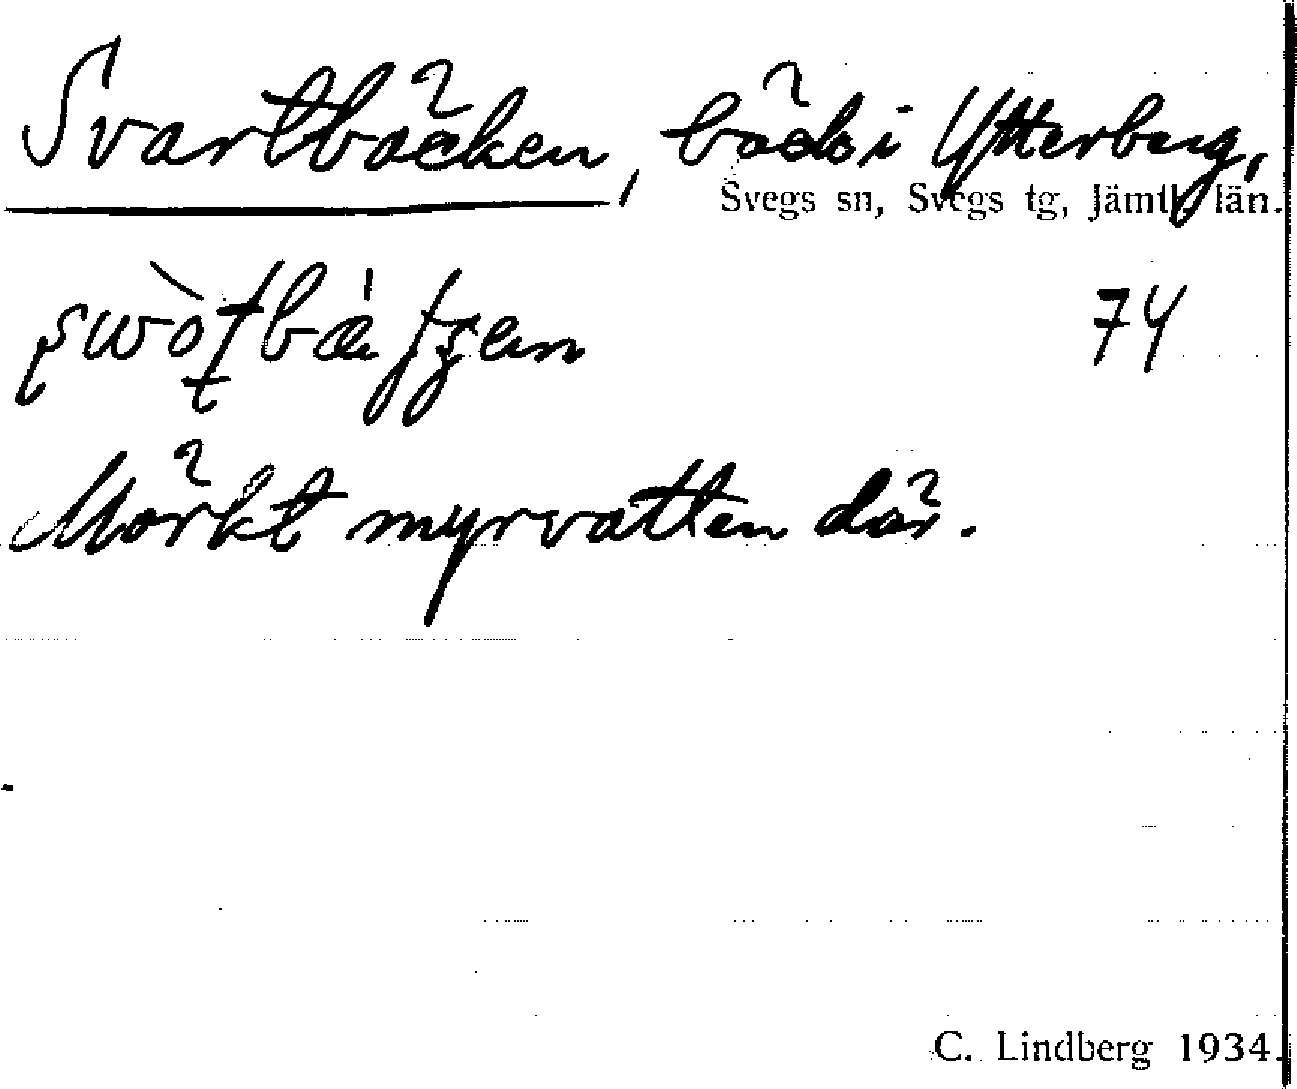 Svartbäcken, bäck i Ytterberg,
Svegs sn, Svegs tg, Jämtl. län.
74
Mörkt myrvatten där.
C. Lindberg 1934.